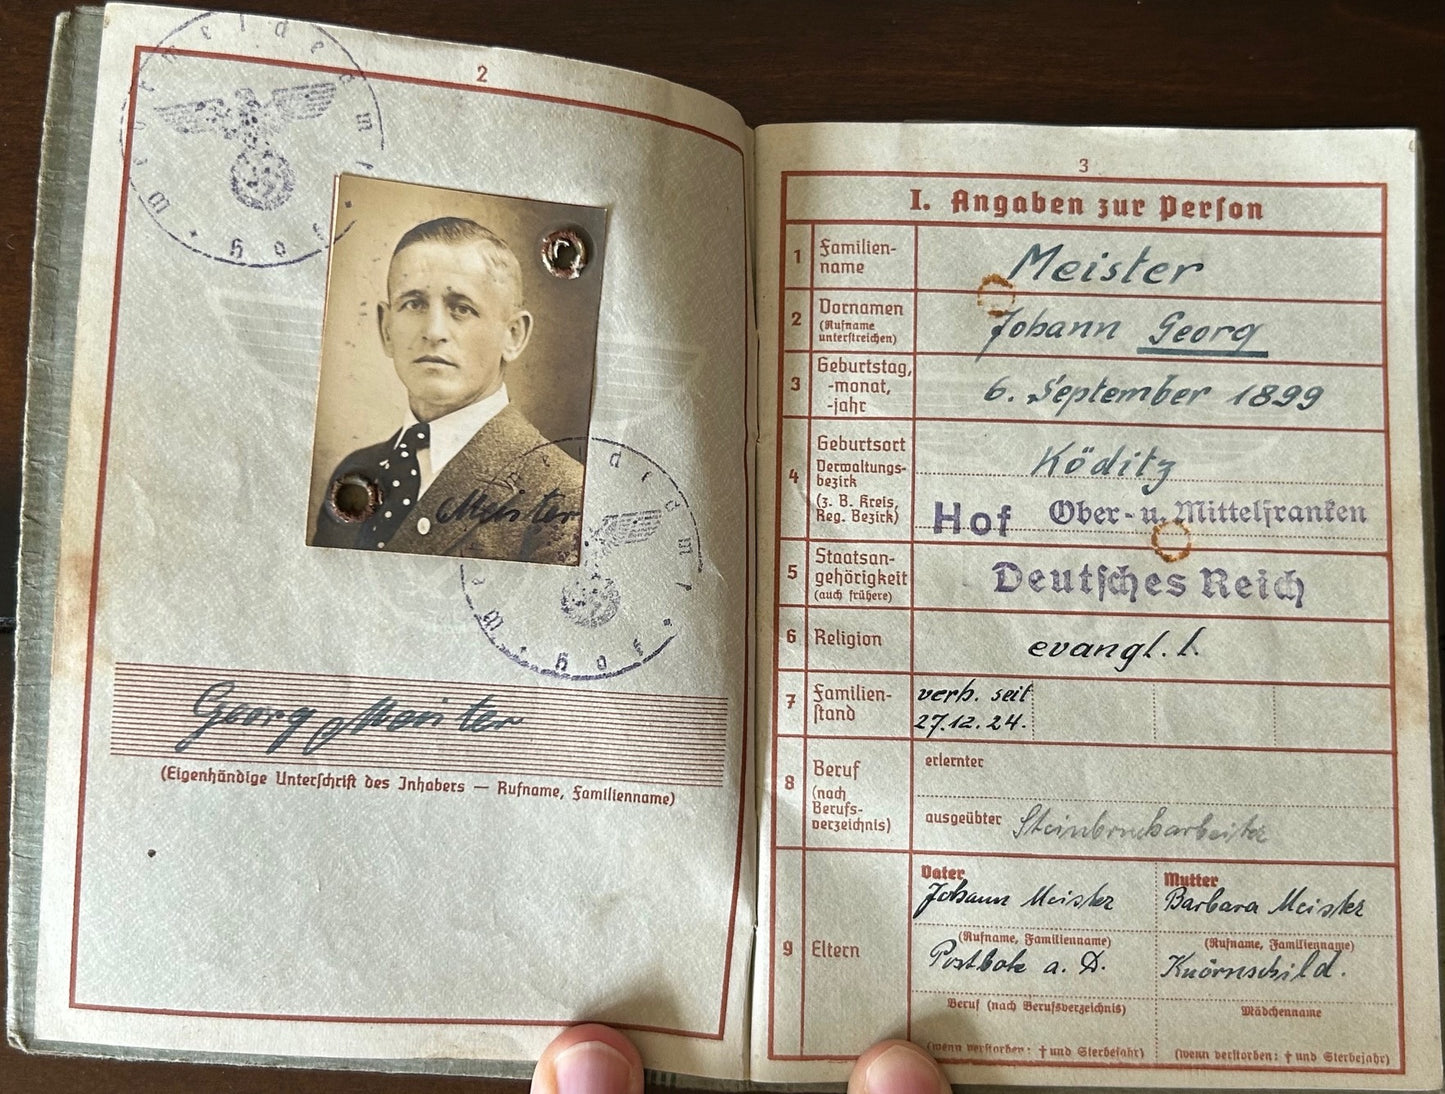 2
Wehrmeldeamt
Hof
Meister
Wehrmeldeamt
Hof
Georg Meister
(Eigenhändige Unterschrift des Inhabers — Rufname, Familienname)
3
I. Angaben zur Person
1 Familien-
name
Meister
2 Vornamen
(Rufname
unterstreichen)
Johann Georg
3 Geburtstag,
-monat,
-jahr
6. September 1899
4 Geburtsort
Verwaltungs-
bezirk
(z. B. Kreis,
Reg. Bezirk)
Köditz
Hof Ober- u. Mittelfranken
5 Staatsan-
gehörigkeit
(auch frühere)
Deutsches Reich
6 Religion
evangl. l.
7 Familien-
stand
verh. seit
27.12.24.
8 Beruf
(nach
Berufs-
verzeichnis)
erlernter
ausgeübter Steinbrucharbeiter
9 Eltern
Vater
Johann Meister
(Rufname, Familienname)
Postbote a. D.
Beruf (nach Berufsverzeichnis)
(wenn verstorben: † und Sterbejahr)
Mutter
Barbara Meister
(Rufname, Familienname)
Knörnschild.
Mädchenname
(wenn verstorben: † und Sterbejahr)